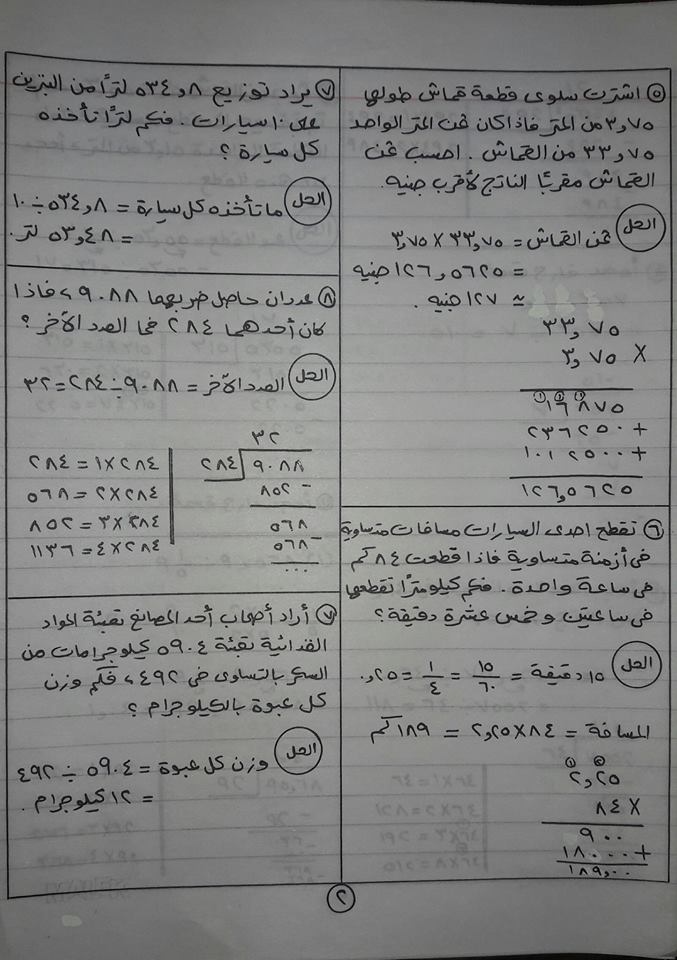 ٥ اشترت سلوى قطعة قماش طولها
٣,٧٥ من المتر فاذا كان ثمن المتر الواحد
٣٣,٧٥ من القماش . احسب ثمن
القماش مقربًا الناتج لأقرب جنيه.
الحل
ثمن القماش = ٣٣,٧٥ × ٣,٧٥
= ١٢٦,٥٦٢٥ جنيه
≈ ١٢٧ جنيه .
٣٣,٧٥
٣,٧٥ ×
١٦٨٧٥
٢٣٦٢٥٠ +
١٠١٢٥٠٠ +
١٢٦,٥٦٢٥
٦ تقطع احدى السيارات مسافات متساوية
فى أزمنة متساوية فاذا قطعت ٨٤ كم
فى ساعة واحدة . فكم كيلو مترًا تقطعها
فى ساعتين و خمس عشرة دقيقة ؟
الحل
١٥ دقيقة = ١٥/٦٠ = ١/٤ = ٠,٢٥
المسافة = ٨٤ × ٢,٢٥ = ١٨٩ كم
٢,٢٥
٨٤ ×
٩٠٠
١٨٠٠٠ +
١٨٩,٠٠
٧ يراد توزيع ٥٣٤,٨ لترًا من البنزين
على ١٠ سيارات . فكم لترًا تأخذه
كل سيارة ؟
الحل
ما تأخذه كل سيارة = ٥٣٤,٨ ÷ ١٠
= ٥٣,٤٨ لتر.
٨ عددان حاصل ضربهما ٩٠٨٨ ، فاذا
كان أحدهما ٢٨٤ فما العدد الآخر ؟
الحل
العدد الآخر = ٩٠٨٨ ÷ ٢٨٤ = ٣٢
٣٢
٢٨٤ ٩٠٨٨
٨٥٢ -
٥٦٨
٥٦٨ -
٠٠٠
٢٨٤ × ١ = ٢٨٤
٢٨٤ × ٢ = ٥٦٨
٢٨٤ × ٣ = ٨٥٢
٢٨٤ × ٤ = ١١٣٦
٧ أراد أصحاب أحد المصانع تعبئة المواد
الغذائية تعبئة ٥٩٠٤ كيلو جرامات من
السكر بالتساوى فى ٤٩٢ ، فكم وزن
كل عبوة بالكيلو جرام ؟
الحل
وزن كل عبوة = ٥٩٠٤ ÷ ٤٩٢
= ١٢ كيلو جرام .
٢